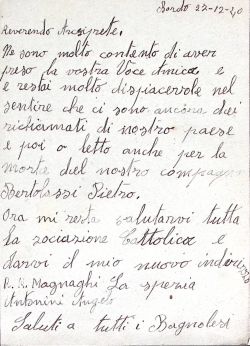 Bordo 22-12-40
Reverendo Arciprete.
Ne sono molto contento di aver
preso la vostra Voce Amica e
e restai molto dispiacevole nel
sentire che ci sono ancora dei
richiamati di nostro paese
e poi o letto anche per la
morte del nostro compagno
Bertolazzi Pietro.
Ora mi resta salutarvi tutta
la sociazione Cattolica e
darvi il mio nuovo indirizzo
R. N. Magnaghi La Spezia
Antonini Angelo
Saluti a tutti i Bagnolesi